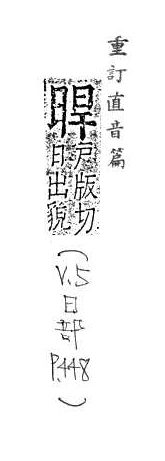 重訂直音篇
晘
戶版切
日出貌
(V.5 日部 P.448)